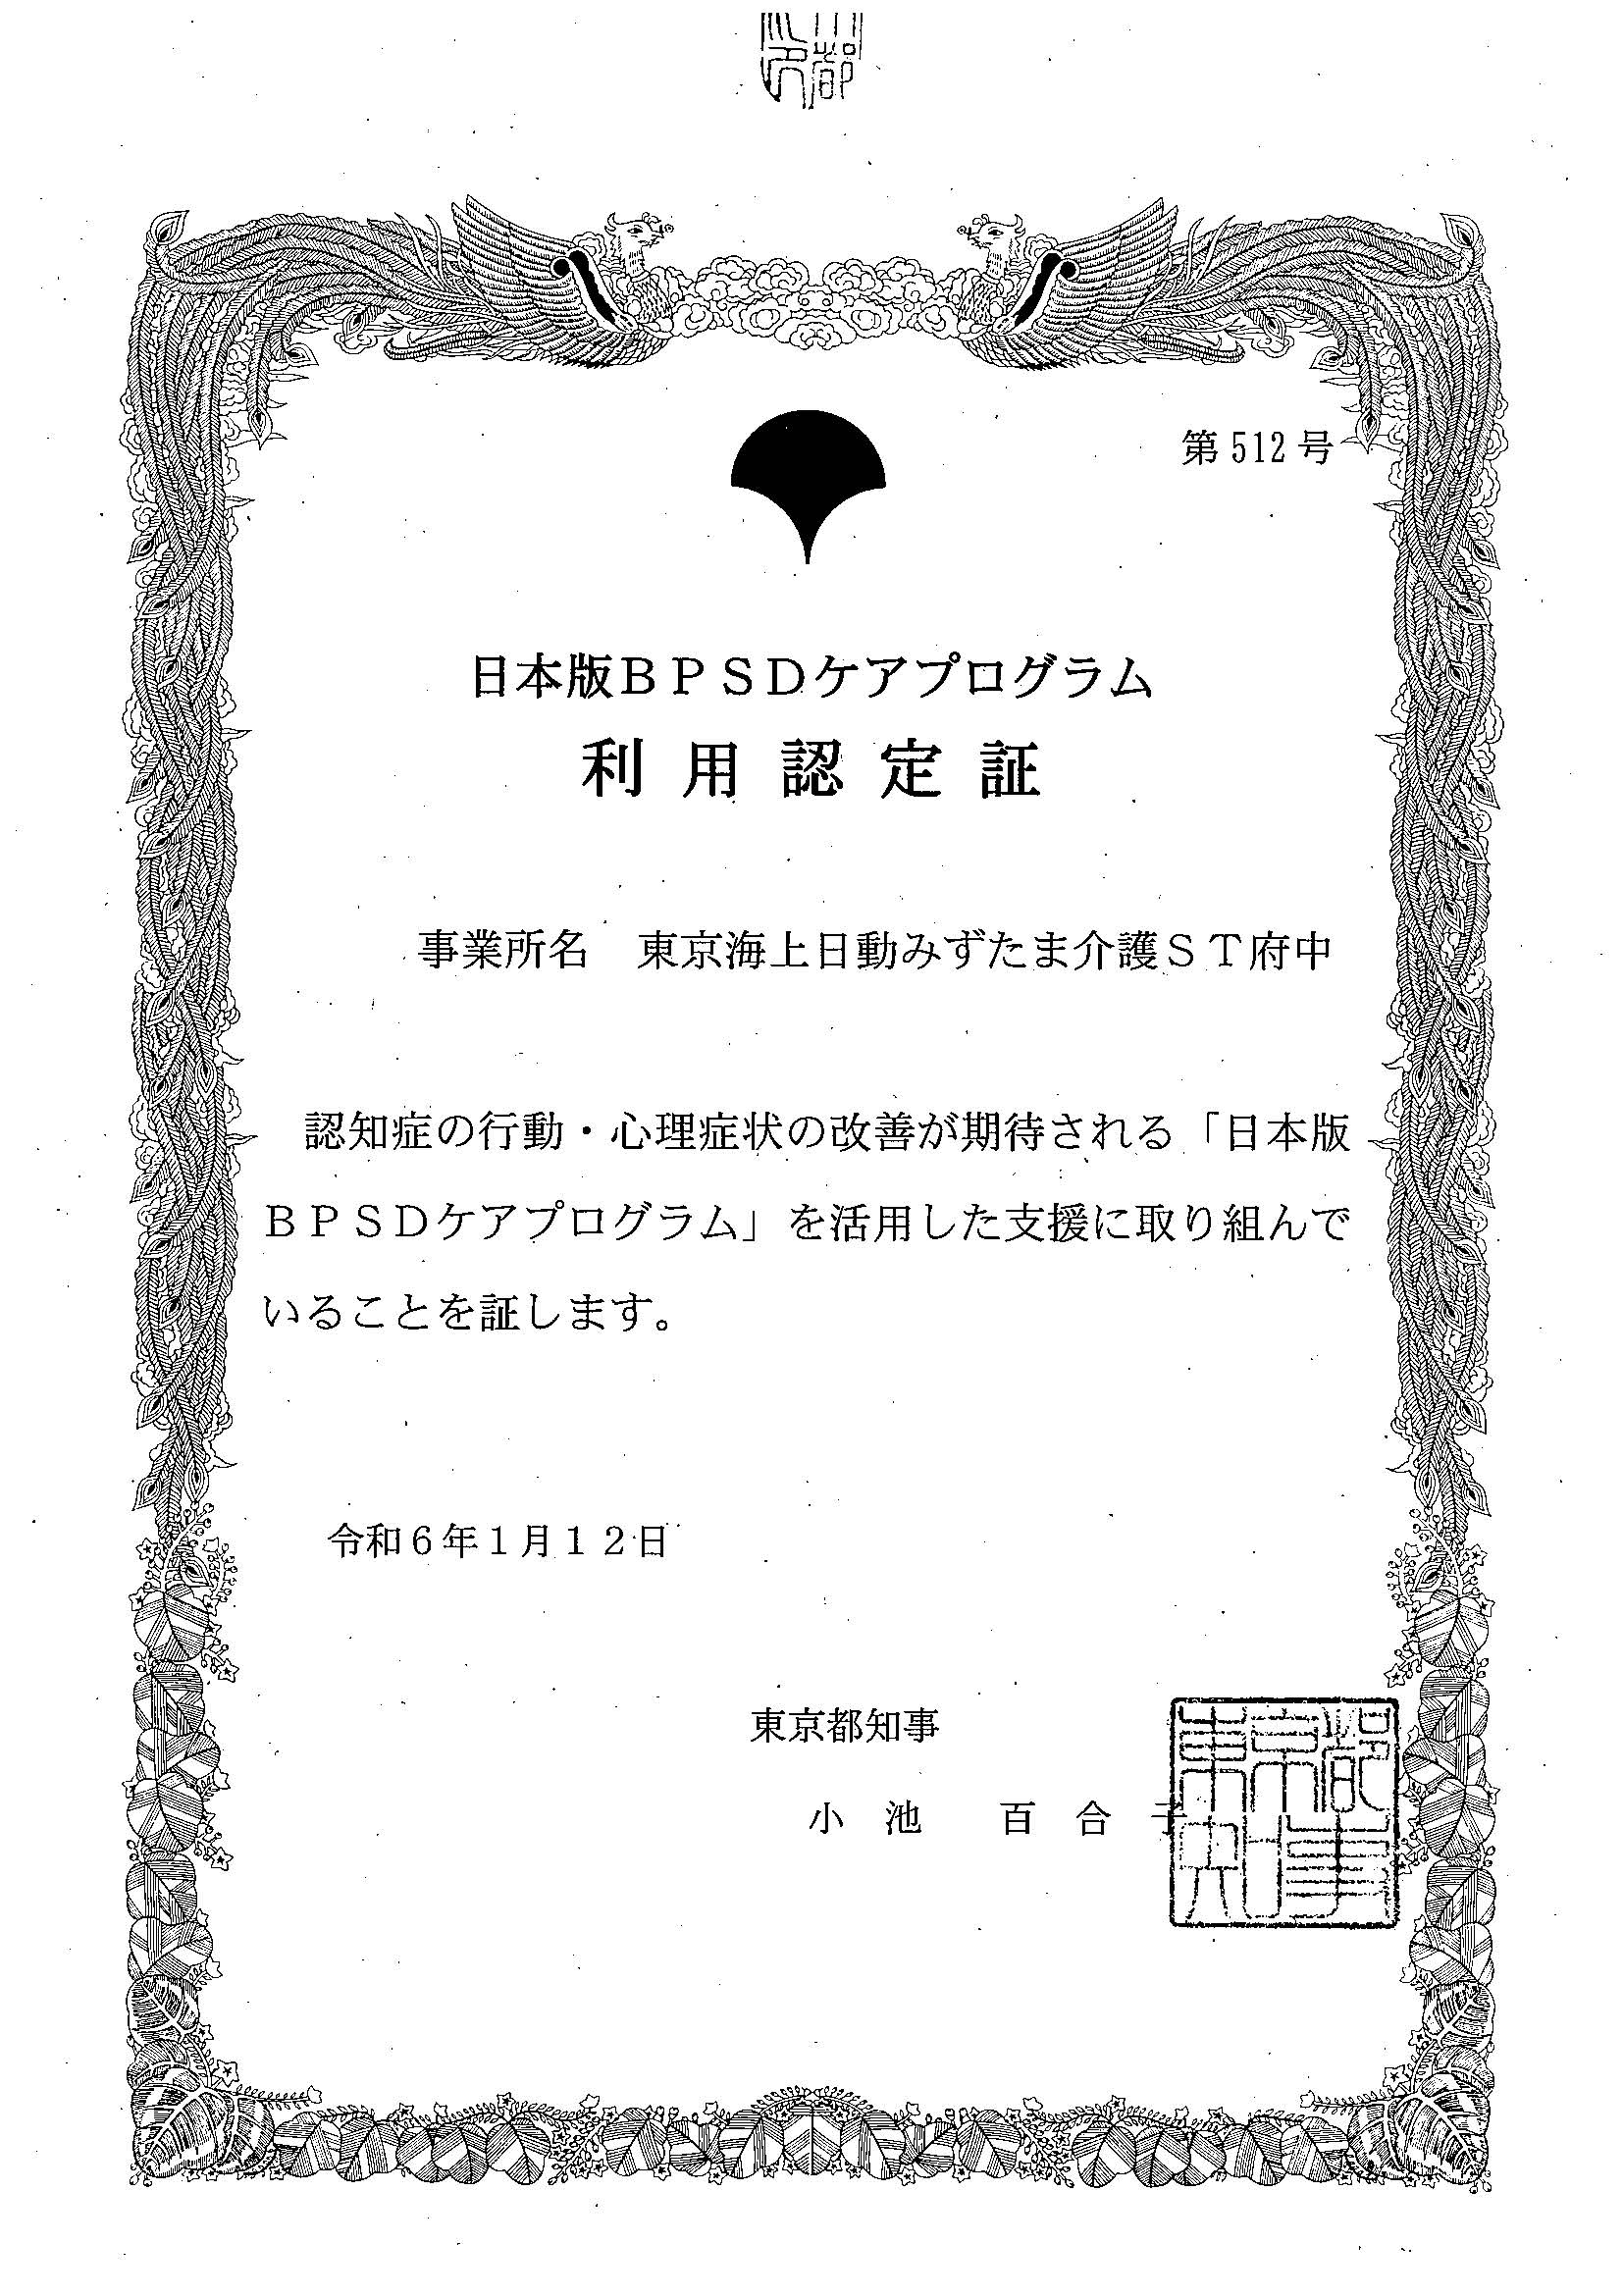 第512号
日本版ＢＰＳＤケアプログラム
利用認定証
事業所名　東京海上日動みずたま介護ＳＴ府中
認知症の行動・心理症状の改善が期待される「日本版
ＢＰＳＤケアプログラム」を活用した支援に取り組んで
いることを証します。
令和６年１月１２日
東京都知事
小池　百合子